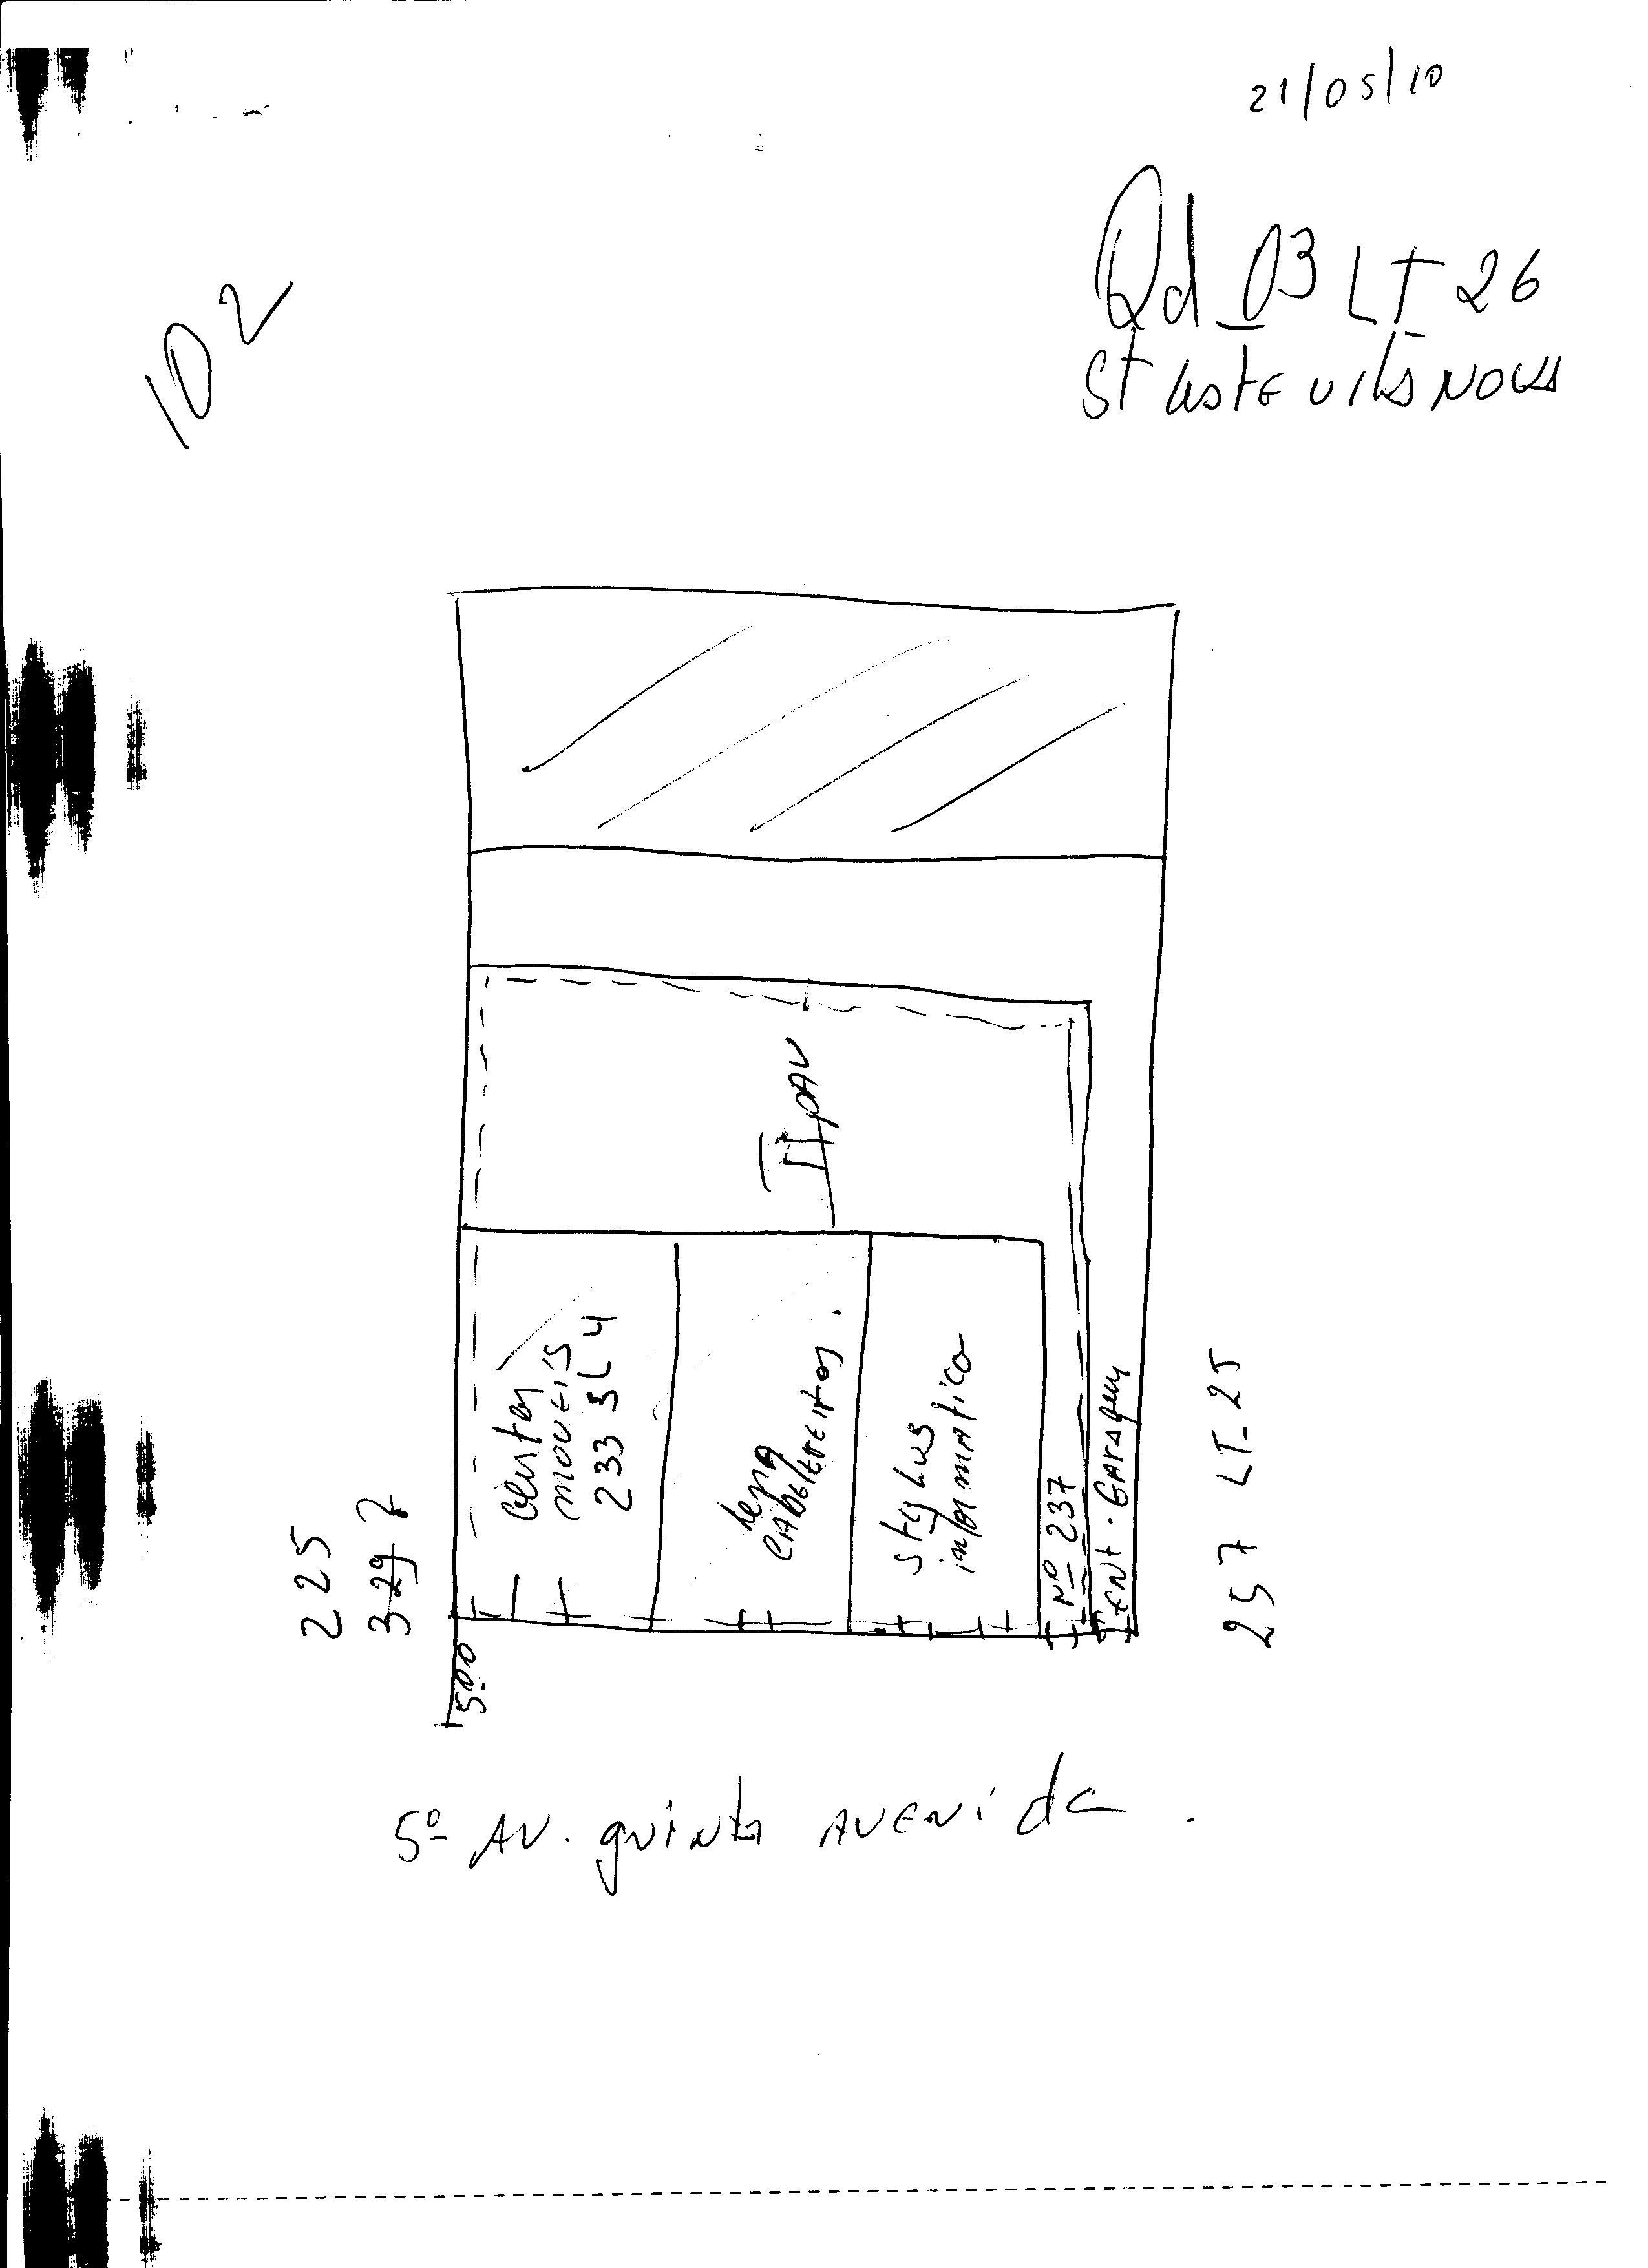 21/05/10
102
Qd 03 LT 26
St Leste Vila Nova
II PAV
center
moveis
233 SL 4
Lena
Cabeleireiros.
stylus
informatica
Nº 237
ENT. GARAgem
225
329 ?
257 LT-25
5.00
5º AV. quinta AVENida.